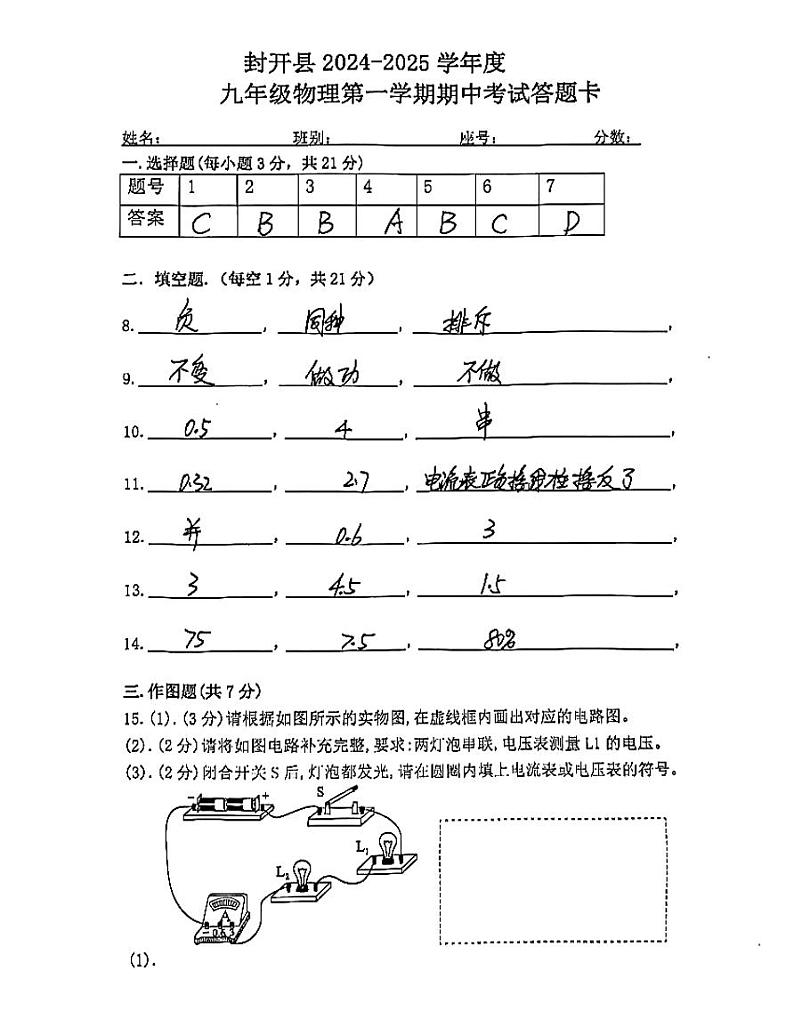 封开县 2024-2025 学年度
九年级物理第一学期期中考试答题卡
姓名: 班别: 座号: 分数:
一.选择题(每小题3分，共21分)
题号 1 2 3 4 5 6 7
答案 C B B A B C D
二. 填空题.（每空1分，共21分）
8. 负 ， 同种 ， 排斥 ，
9. 不变 ， 做功 ， 不做 ，
10. 0.5 ， 4 ， 串 ，
11. 0.32 ， 2.7 ， 电流表正负接线柱接反了 ，
12. 并 ， 0.6 ， 3 ，
13. 3 ， 4.5 ， 1.5 ，
14. 75 ， 7.5 ， 80% ，
三.作图题(共7分)
15.(1).(3分)请根据如图所示的实物图,在虚线框内画出对应的电路图。
(2).(2分)请将如图电路补充完整,要求:两灯泡串联,电压表测量L1的电压。
(3).(2分)闭合开关S后,灯泡都发光,请在圆圈内填上电流表或电压表的符号。
- +
S
L₁
L₂
A
- 0.6 3
(1).